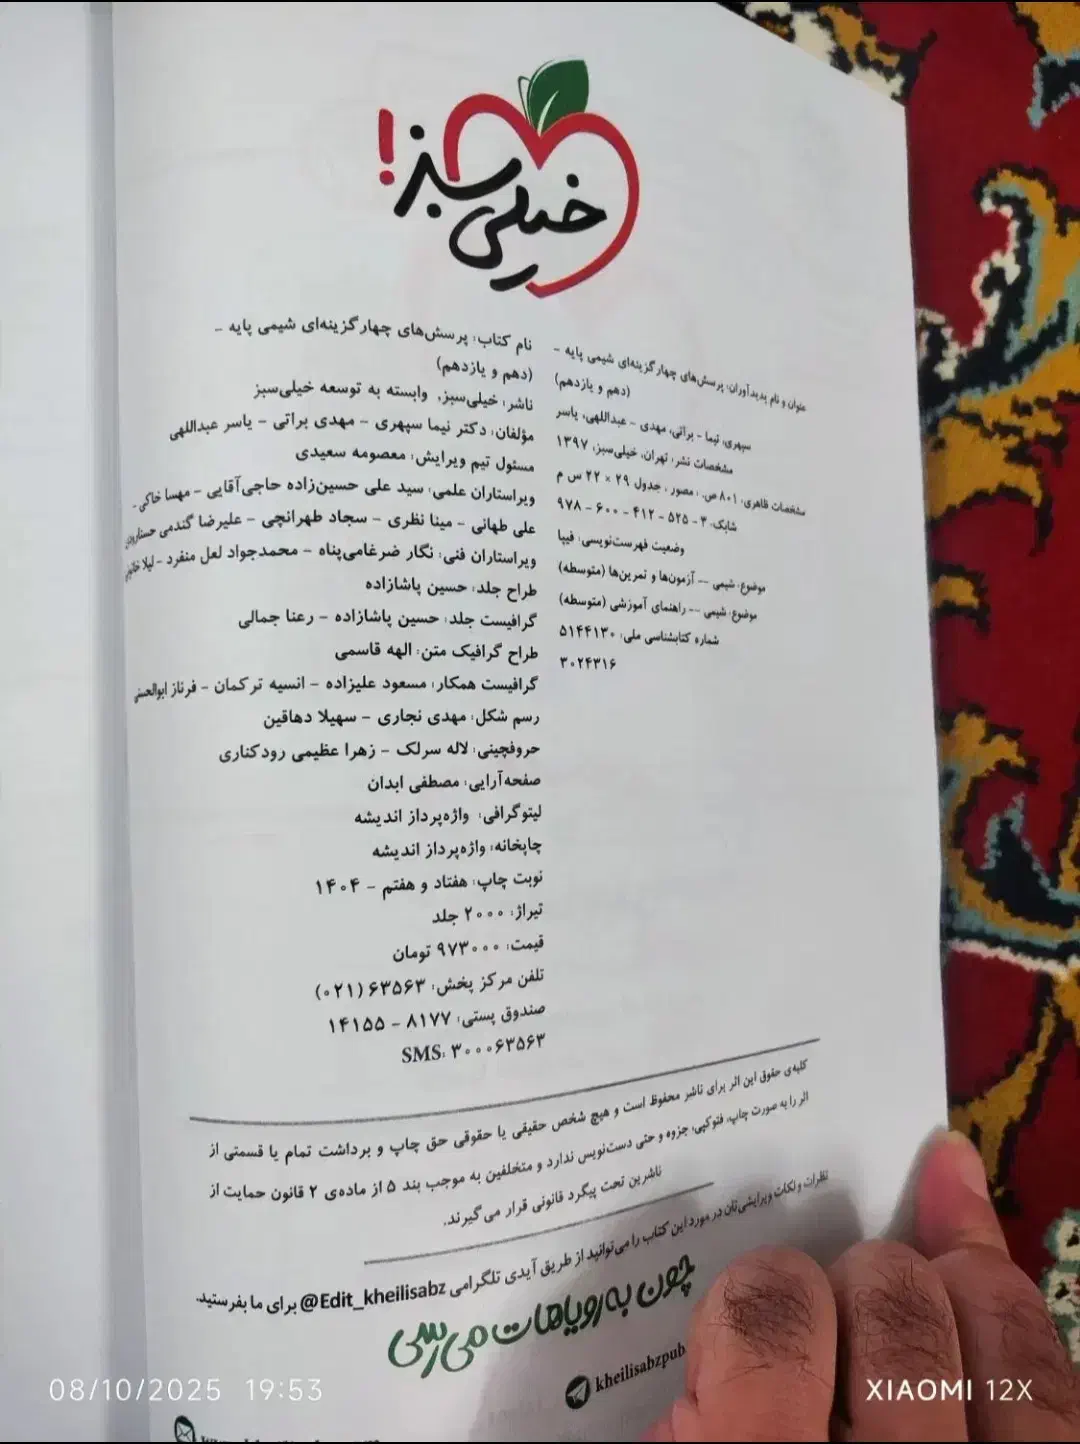 خیلی سبز!
عنوان و نام پدیدآوران: پرسش‌های چهارگزینه‌ای شیمی پایه –
(دهم و یازدهم)
سپهری، نیما – براتی، مهدی – عبداللهی، یاسر
مشخصات نشر: تهران، خیلی‌سبز، ۱۳۹۷
مشخصات ظاهری: ۸۰۱ ص. ، مصور ، جدول ۲۹ × ۲۲ س م
شابک: ۳ – ۵۲۵ – ۴۱۲ – ۶۰۰ – ۹۷۸
وضعیت فهرست‌نویسی: فیپا
موضوع: شیمی -- آزمون‌ها و تمرین‌ها (متوسطه)
موضوع: شیمی -- راهنمای آموزشی (متوسطه)
شماره کتابشناسی ملی: ۵۱۴۴۱۳۰
۳۰۲۴۳۱۶
نام کتاب: پرسش‌های چهارگزینه‌ای شیمی پایه –
(دهم و یازدهم)
ناشر: خیلی‌سبز، وابسته به توسعه خیلی‌سبز
مؤلفان: دکتر نیما سپهری – مهدی براتی – یاسر عبداللهی
مسئول تیم ویرایش: معصومه سعیدی
ویراستاران علمی: سید علی حسین‌زاده حاجی‌آقایی – مهسا خاکی –
علی طهانی – مینا نظری – سجاد طهرانچی – علیرضا گندمی
ویراستاران فنی: نگار ضرغامی‌پناه – محمدجواد لعل منفرد – لیلا
طراح جلد: حسین پاشازاده
گرافیست جلد: حسین پاشازاده – رعنا جمالی
طراح گرافیک متن: الهه قاسمی
گرافیست همکار: مسعود علیزاده – انسیه ترکمان – فرناز ابوالحسنی
رسم شکل: مهدی نجاری – سهیلا دهاقین
حروفچینی: لاله سرلک – زهرا عظیمی رودکناری
صفحه‌آرایی: مصطفی ابدان
لیتوگرافی: واژه‌پرداز اندیشه
چاپخانه: واژه‌پرداز اندیشه
نوبت چاپ: هفتاد و هفتم – ۱۴۰۴
تیراژ: ۲۰۰۰ جلد
قیمت: ۹۷۳۰۰۰ تومان
تلفن مرکز پخش: ۶۳۵۶۳ (۰۲۱)
صندوق پستی: ۸۱۷۷ – ۱۴۱۵۵
SMS: ۳۰۰۰۶۳۵۶۳
کلیه‌ی حقوق این اثر برای ناشر محفوظ است و هیچ شخص حقیقی یا حقوقی حق چاپ و برداشت تمام یا قسمتی از
اثر را به صورت چاپ، فتوکپی، جزوه و حتی دست‌نویس ندارد و متخلفین به موجب بند ۵ از ماده‌ی ۲ قانون حمایت از
ناشرین تحت پیگرد قانونی قرار می‌گیرند.
نظرات و نکات ویرایشی‌تان در مورد این کتاب را می‌توانید از طریق آیدی تلگرامی @Edit_kheilisabz برای ما بفرستید.
چون به رویاهات می‌رسی
kheilisabzpub
08/10/2025 19:53
XIAOMI 12X